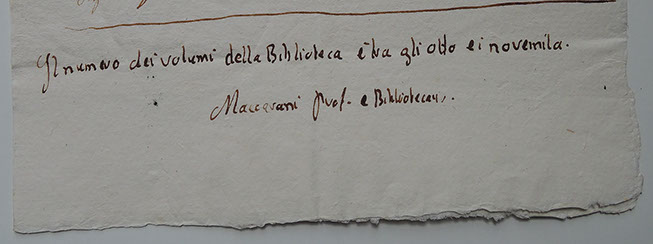 Il numero dei volumi della Biblioteca è tra gli otto e i novemila.
Maccarani Prof. e Bibliotecar.